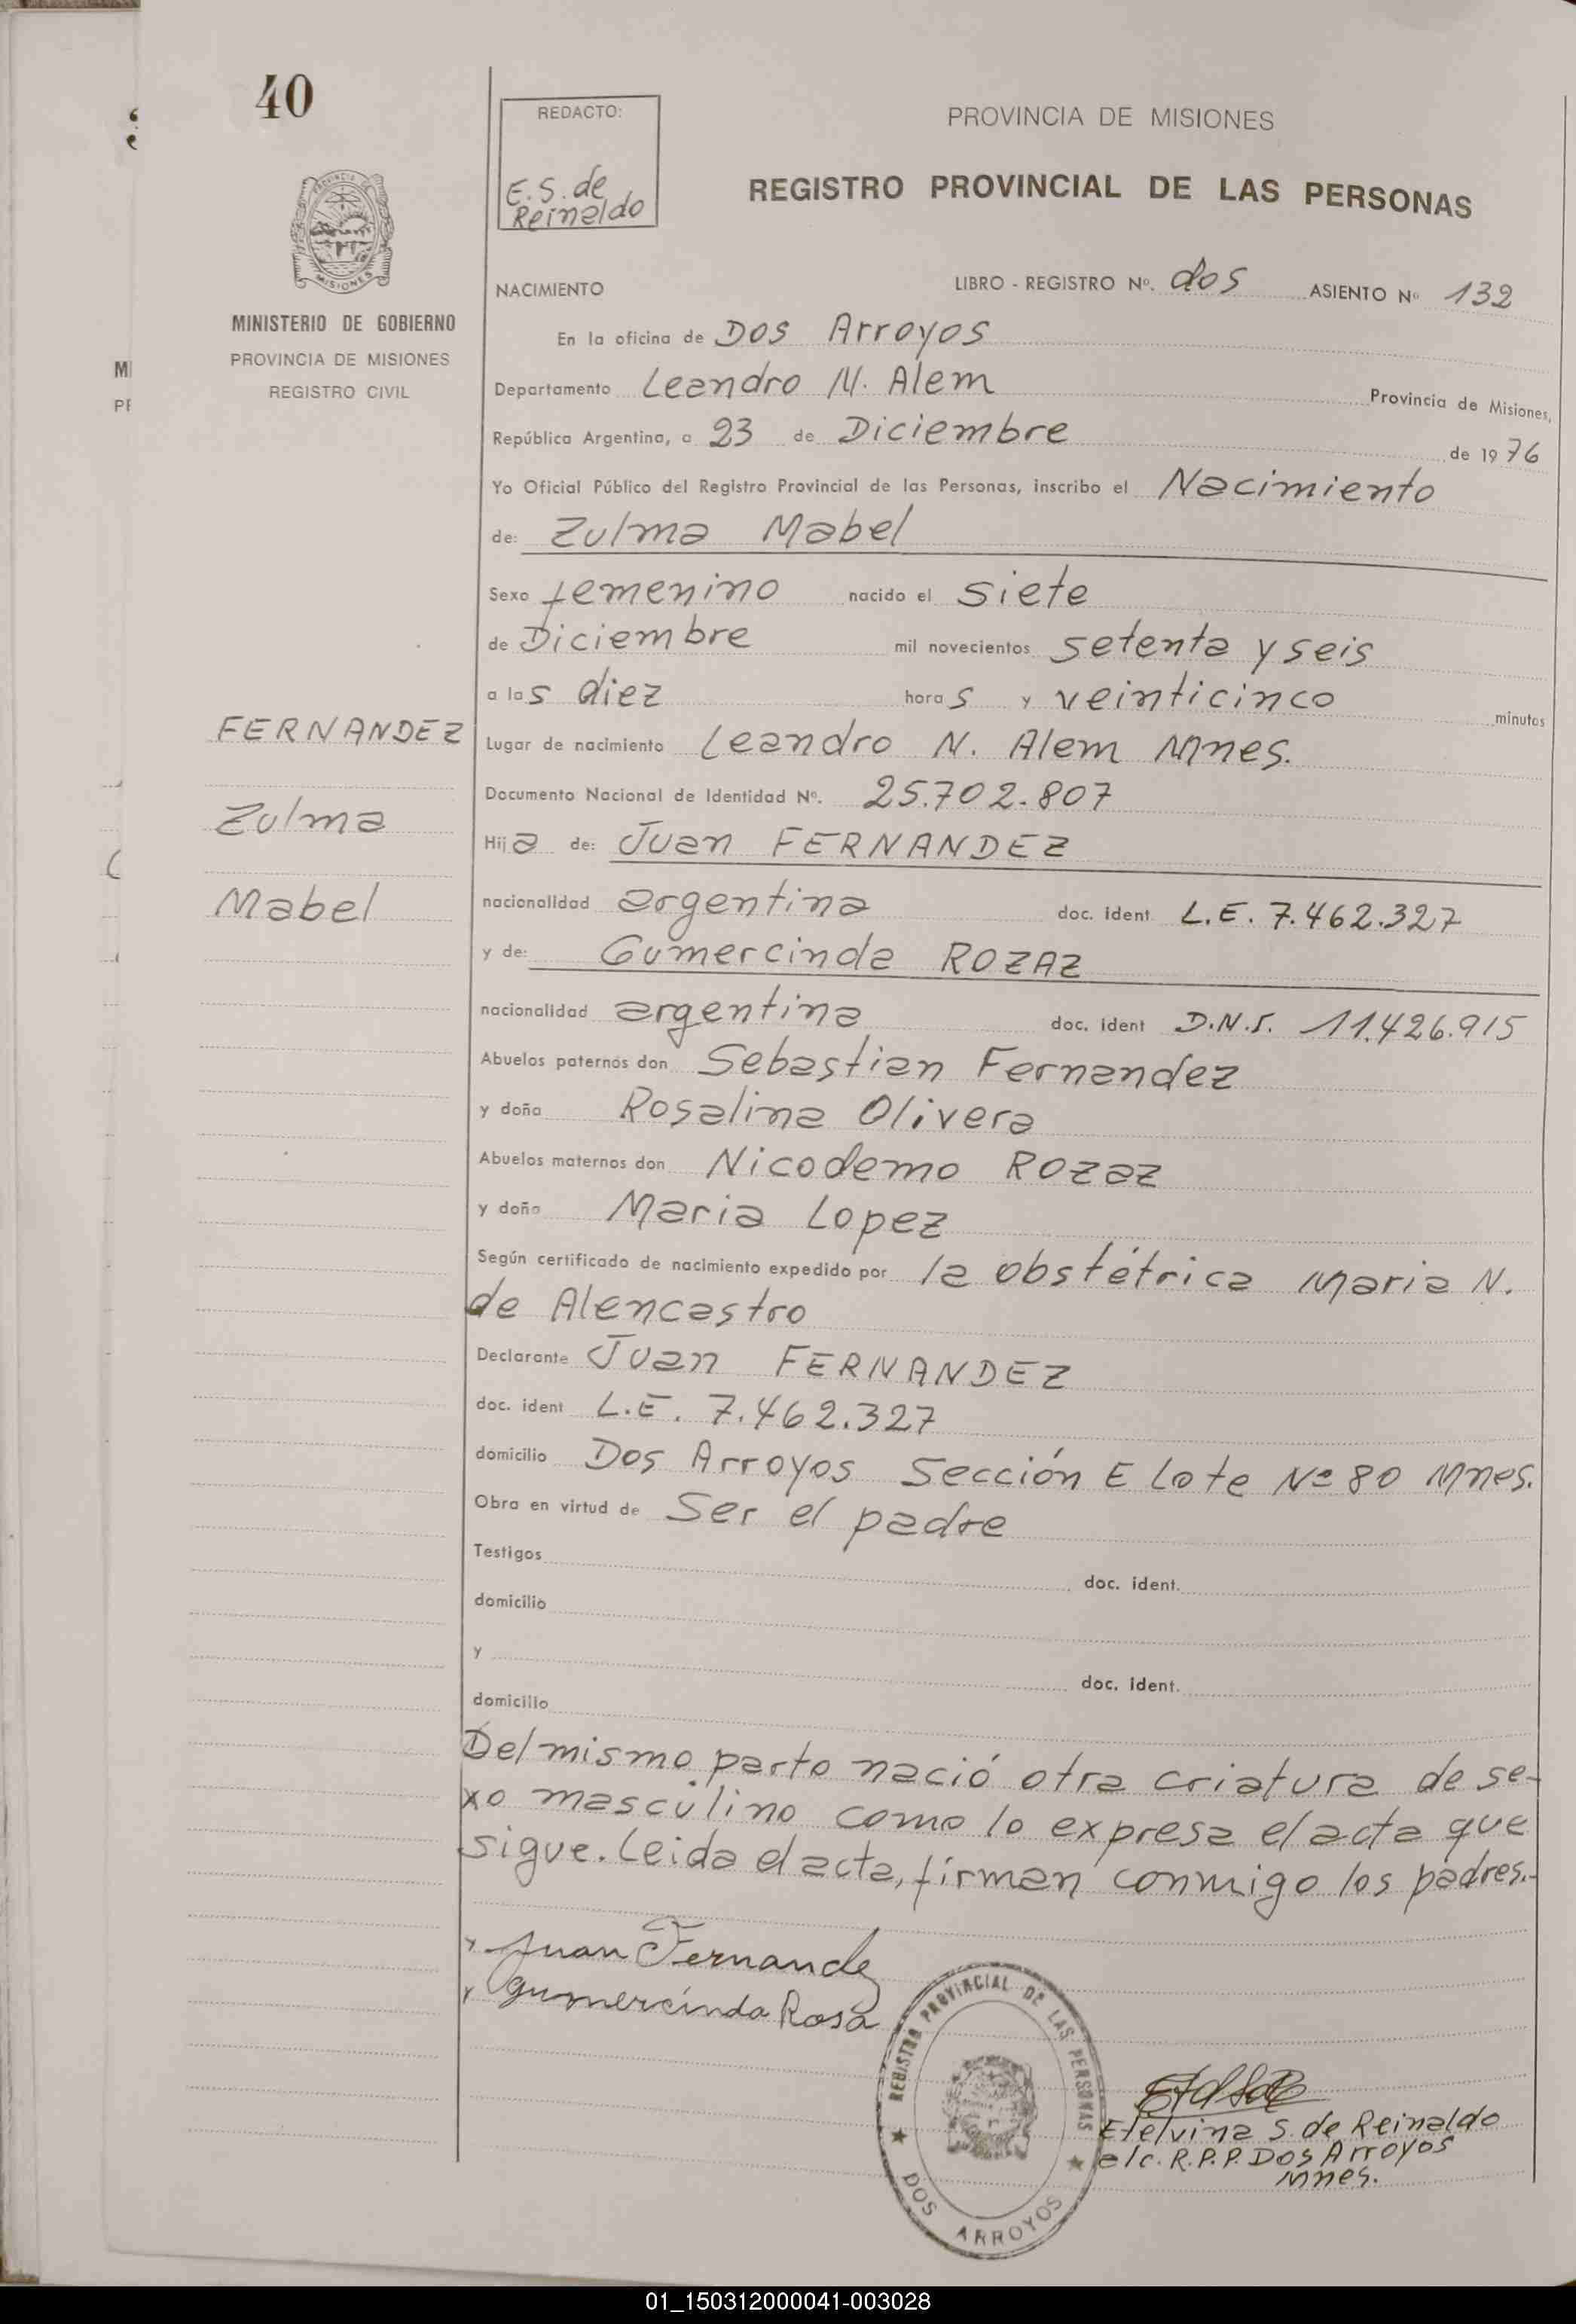 40
REDACTO:
E.S. de
Reinaldo
PROVINCIA DE MISIONES
REGISTRO PROVINCIAL DE LAS PERSONAS
MISIONES
MINISTERIO DE GOBIERNO
PROVINCIA DE MISIONES
REGISTRO CIVIL
NACIMIENTO LIBRO - REGISTRO Nº. dos ASIENTO Nº 132
En la oficina de Dos Arroyos
Departamento Leandro N. Alem Provincia de Misiones,
República Argentina, a 23 de Diciembre de 1976
Yo Oficial Público del Registro Provincial de las Personas, inscribo el Nacimiento
de: Zulma Mabel
Sexo femenino nacido el siete
de Diciembre mil novecientos setenta y seis
a las diez horas y veinticinco minutos
FERNANDEZ
Zulma
Mabel
Lugar de nacimiento Leandro N. Alem Mnes.
Documento Nacional de Identidad Nº. 25.702.807
Hija de: Juan FERNANDEZ
nacionalidad argentina doc. ident L.E. 7.462.327
y de: Gumercinda ROZAZ
nacionalidad argentina doc. ident D.N.I. 11.426.915
Abuelos paternos don Sebastian Fernandez
y doña Rosalina Olivera
Abuelos maternos don Nicodemo Rozaz
y doña Maria Lopez
Según certificado de nacimiento expedido por la obstétrica Maria N.
de Alencastro
Declarante Juan FERNANDEZ
doc. ident L.E. 7.462.327
domicilio Dos Arroyos Sección E Lote Nº 80 Mnes.
Obra en virtud de Ser el padre
Testigos doc. ident.
domicilio
y doc. ident.
domicilio
Del mismo parto nació otra criatura de se-
xo masculino como lo expresa el acta que
sigue. Leida el acta, firman conmigo los padres.-
Juan Fernandez
Gumercinda Rosa
REGISTRO PROVINCIAL DE LAS PERSONAS
DOS ARROYOS
Etelvina S. de Reinaldo
e/c. R.P.P. Dos Arroyos
Mnes.
01_150312000041-003028